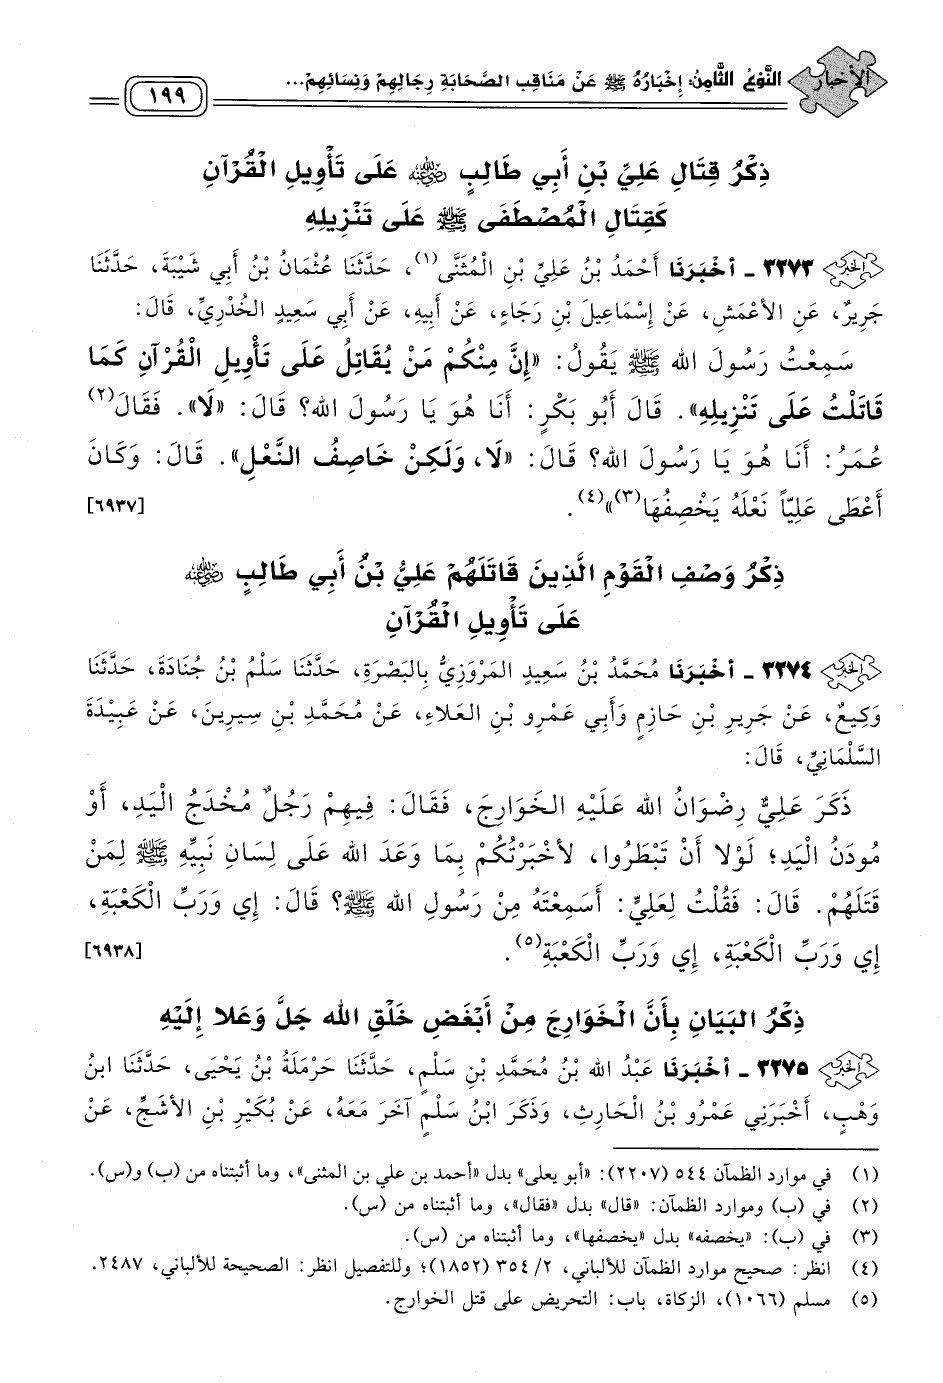 الأخبار
النَّوْعُ الثَّامِنُ: إِخْبَارُهُ ﷺ عَنْ مَنَاقِبِ الصَّحَابَةِ رِجَالِهِمْ وَنِسَائِهِمْ...
١٩٩
ذِكْرُ قِتَالِ عَلِيِّ بْنِ أَبِي طَالِبٍ رضي الله عنه عَلَى تَأْوِيلِ الْقُرْآنِ
كَقِتَالِ الْمُصْطَفَى ﷺ عَلَى تَنْزِيلِهِ
٣٢٧٣ - أَخْبَرَنَا أَحْمَدُ بْنُ عَلِيِّ بْنِ الْمُثَنَّى(١)، حَدَّثَنَا عُثْمَانُ بْنُ أَبِي شَيْبَةَ، حَدَّثَنَا
جَرِيرٌ، عَنِ الأَعْمَشِ، عَنْ إِسْمَاعِيلَ بْنِ رَجَاءٍ، عَنْ أَبِيهِ، عَنْ أَبِي سَعِيدٍ الخُدْرِيِّ، قَالَ:
سَمِعْتُ رَسُولَ الله ﷺ يَقُولُ: «إِنَّ مِنْكُمْ مَنْ يُقَاتِلُ عَلَى تَأْوِيلِ الْقُرْآنِ كَمَا
قَاتَلْتُ عَلَى تَنْزِيلِهِ». قَالَ أَبُو بَكْرٍ: أَنَا هُوَ يَا رَسُولَ الله؟ قَالَ: «لَا». فَقَالَ(٢)
عُمَرُ: أَنَا هُوَ يَا رَسُولَ الله؟ قَالَ: «لَا، وَلَكِنْ خَاصِفُ النَّعْلِ». قَالَ: وَكَانَ
أَعْطَى عَلِيّاً نَعْلَهُ يَخْصِفُهَا(٣)»(٤). [٦٩٣٧]
ذِكْرُ وَصْفِ الْقَوْمِ الَّذِينَ قَاتَلَهُمْ عَلِيُّ بْنُ أَبِي طَالِبٍ رضي الله عنه
عَلَى تَأْوِيلِ الْقُرْآنِ
٣٢٧٤ - أَخْبَرَنَا مُحَمَّدُ بْنُ سَعِيدٍ المَرْوَزِيُّ بِالبَصْرَةِ، حَدَّثَنَا سَلْمُ بْنُ جُنَادَةَ، حَدَّثَنَا
وَكِيعٌ، عَنْ جَرِيرِ بْنِ حَازِمٍ وَأَبِي عَمْرِو بْنِ العَلَاءِ، عَنْ مُحَمَّدِ بْنِ سِيرِينَ، عَنْ عَبِيْدَةَ
السَّلْمَانِيِّ، قَالَ:
ذَكَرَ عَلِيٌّ رِضْوَانُ الله عَلَيْهِ الخَوَارِجَ، فَقَالَ: فِيهِمْ رَجُلٌ مُخْدَجُ الْيَدِ، أَوْ
مُودَنُ الْيَدِ؛ لَوْلا أَنْ تَبْطَرُوا، لأَخْبَرْتُكُمْ بِمَا وَعَدَ الله عَلَى لِسَانِ نَبِيِّهِ ﷺ لِمَنْ
قَتَلَهُمْ. قَالَ: فَقُلْتُ لِعَلِيٍّ: أَسَمِعْتَهُ مِنْ رَسُولِ الله ﷺ؟ قَالَ: إِي وَرَبِّ الْكَعْبَةِ،
إِي وَرَبِّ الْكَعْبَةِ، إِي وَرَبِّ الْكَعْبَةِ(٥). [٦٩٣٨]
ذِكْرُ البَيَانِ بِأَنَّ الْخَوَارِجَ مِنْ أَبْغَضِ خَلْقِ الله جَلَّ وَعَلا إِلَيْهِ
٣٢٧٥ - أَخْبَرَنَا عَبْدُ الله بْنُ مُحَمَّدِ بْنِ سَلْمٍ، حَدَّثَنَا حَرْمَلَةُ بْنُ يَحْيَى، حَدَّثَنَا ابنُ
وَهْبٍ، أَخْبَرَنِي عَمْرُو بْنُ الْحَارِثِ، وَذَكَرَ ابْنُ سَلْمٍ آخَرَ مَعَهُ، عَنْ بُكَيْرِ بْنِ الأَشَجِّ، عَنْ
(١) في موارد الظمآن ٥٤٤ (٢٢٠٧): «أبو يعلى» بدل «أحمد بن علي بن المثنى»، وما أثبتناه من (ب) و(س).
(٢) في (ب) وموارد الظمآن: «قال» بدل «فقال»، وما أثبتناه من (س).
(٣) في (ب): «يخصفه» بدل «يخصفها»، وما أثبتناه من (س).
(٤) انظر: صحيح موارد الظمآن للألباني، ٢/ ٣٥٤ (١٨٥٢)؛ وللتفصيل انظر: الصحيحة للألباني، ٢٤٨٧.
(٥) مسلم (١٠٦٦)، الزكاة، باب: التحريض على قتل الخوارج.